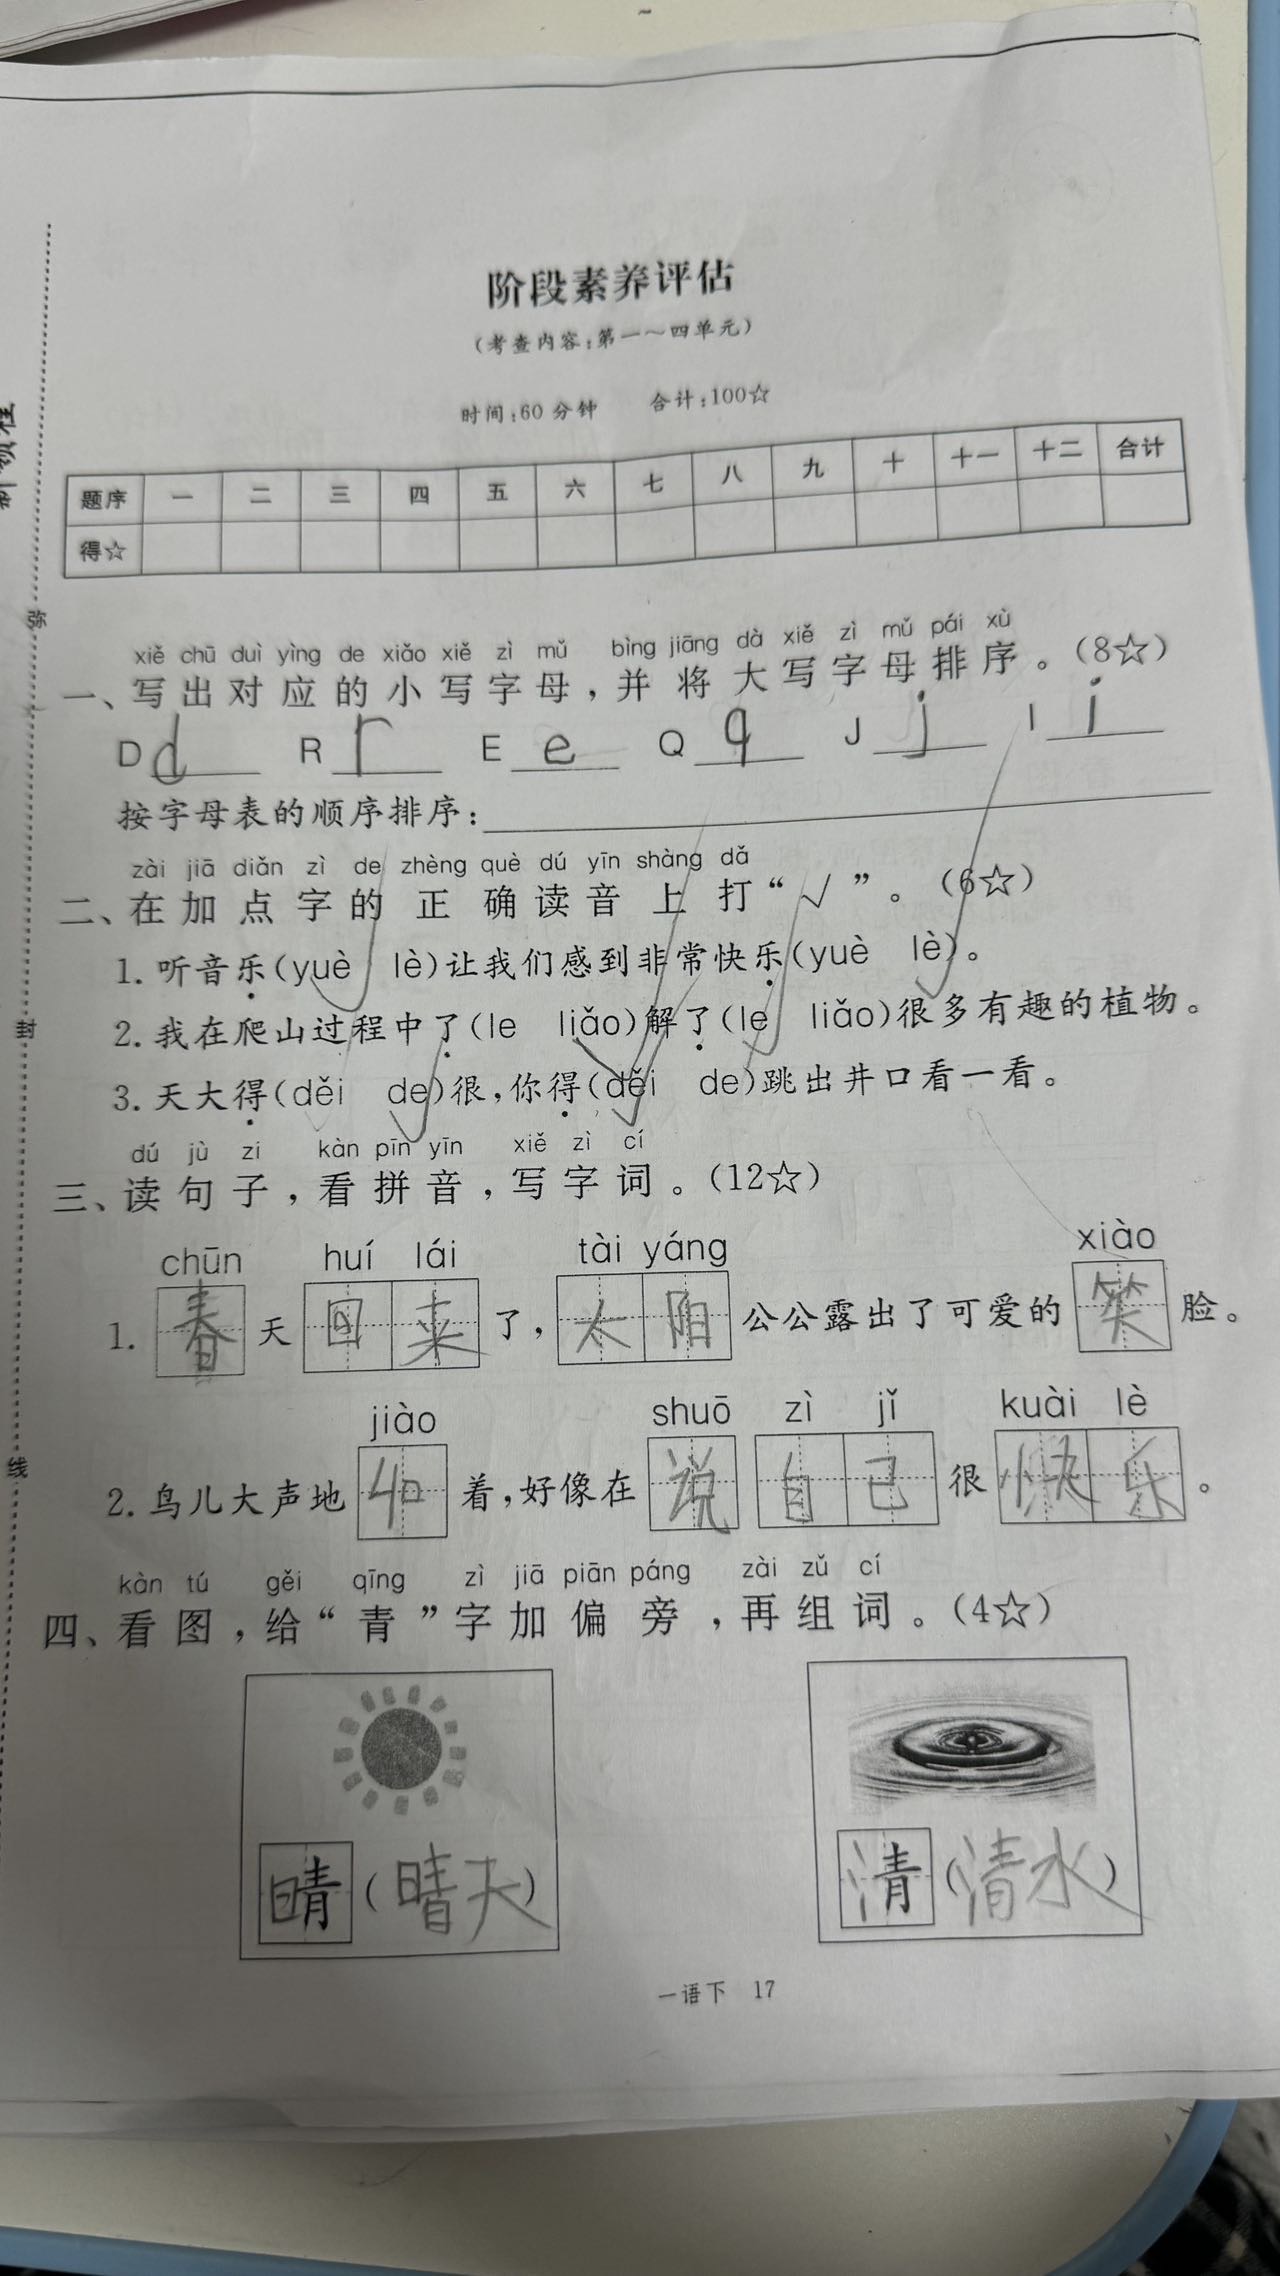 阶段素养评估
（考查内容：第一～四单元）
时间：60分钟 合计：100☆
题序 一 二 三 四 五 六 七 八 九 十 十一 十二 合计
得☆
弥
封
线
xiě chū duì yìng de xiǎo xiě zì mǔ bìng jiāng dà xiě zì mǔ pái xù
一、写出对应的小写字母，并将大写字母排序。（8☆）
D d R r E e Q q J j I i
按字母表的顺序排序：
zài jiā diǎn zì de zhèng què dú yīn shàng dǎ
二、在加点字的正确读音上打“√”。（6☆）
1. 听音乐（yuè lè）让我们感到非常快乐（yuè lè）。
2. 我在爬山过程中了（le liǎo）解了（le liǎo）很多有趣的植物。
3. 天大得（děi de）很，你得（děi de）跳出井口看一看。
dú jù zi kàn pīn yīn xiě zì cí
三、读句子，看拼音，写字词。（12☆）
chūn huí lái tài yáng xiào
1. 春天回来了，太阳公公露出了可爱的笑脸。
jiào shuō zì jǐ kuài lè
2. 鸟儿大声地叫着，好像在说自己很快乐。
kàn tú gěi qīng zì jiā piān páng zài zǔ cí
四、看图，给“青”字加偏旁，再组词。（4☆）
晴（晴天） 清（清水）
一语下 17